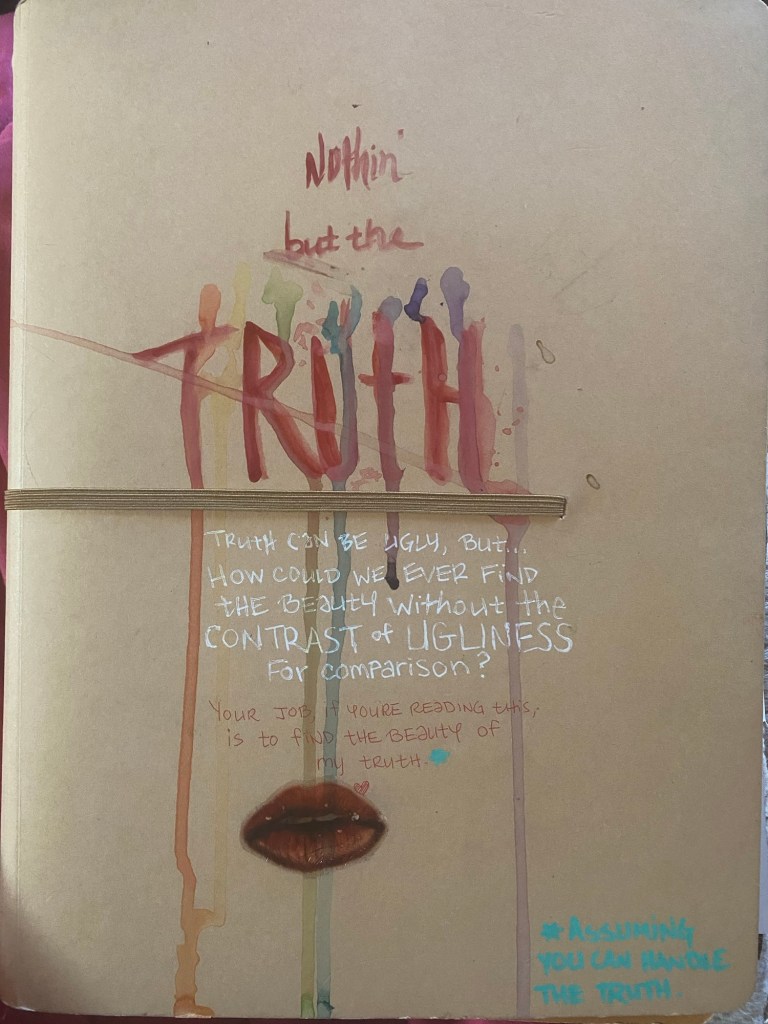 Nothin'
but the
TRUTH
TRUTH CAN BE UGLY, BUT...
HOW COULD WE EVER FIND
tHE BEAUTY Without the
CONTRAST of UGLINESS
For comparison?
YOUR JOB, if YOU'RE READING this,
is to find the BEAUTY of
my tRUtH.*
* ASSUMING
YOU CAN HANDLE
THE TRUTH.